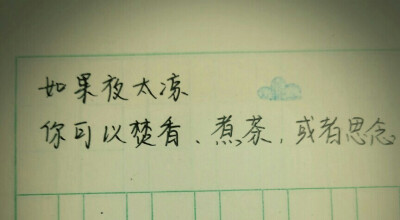 如果夜太凉
你可以焚香、煮茶,或者思念